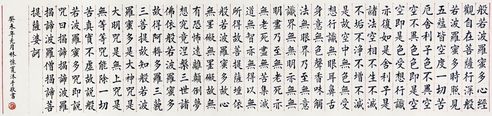 般若波羅蜜多心經
觀自在菩薩行深般
若波羅蜜多時照見
五蘊皆空度一切苦
厄舍利子色不異空
空不異色色即是空
空即是色受想行識
亦復如是舍利子是
諸法空相不生不滅
不垢不淨不增不減
是故空中無色無受
想行識無眼耳鼻舌
身意無色聲香味觸
法無眼界乃至無意
識界無無明亦無無
明盡乃至無老死亦
無老死盡無苦集滅
道無智亦無得以無
所得故菩提薩埵依
般若波羅蜜多故心
無罣礙無罣礙故無
有恐怖遠離顛倒夢
想究竟涅槃三世諸
佛依般若波羅蜜多
故得阿耨多羅三藐
三菩提故知般若波
羅蜜多是大神咒是
大明咒是無上咒是
無等等咒能除一切
苦真實不虛故說般
若波羅蜜多咒即說
咒曰揭諦揭諦波羅
揭諦波羅僧揭諦菩
提薩婆訶
沐手敬書